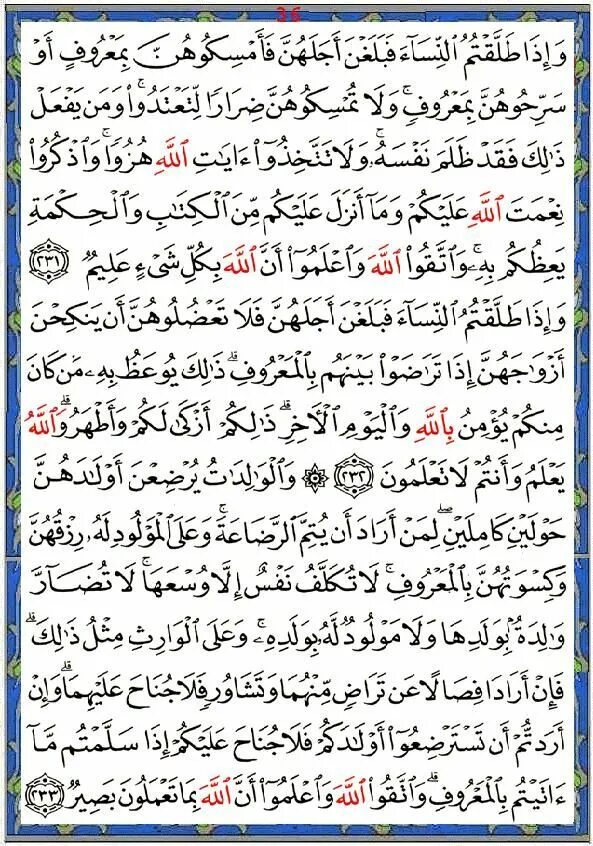 36
وَإِذَا طَلَّقْتُمُ ٱلنِّسَآءَ فَبَلَغْنَ أَجَلَهُنَّ فَأَمْسِكُوهُنَّ بِمَعْرُوفٍ أَوْ
سَرِّحُوهُنَّ بِمَعْرُوفٍ ۚ وَلَا تُمْسِكُوهُنَّ ضِرَارًا لِّتَعْتَدُوا۟ ۚ وَمَن يَفْعَلْ
ذَٰلِكَ فَقَدْ ظَلَمَ نَفْسَهُۥ ۚ وَلَا تَتَّخِذُوٓا۟ ءَايَٰتِ ٱللَّهِ هُزُوًا ۚ وَٱذْكُرُوا۟
نِعْمَتَ ٱللَّهِ عَلَيْكُمْ وَمَآ أَنزَلَ عَلَيْكُم مِّنَ ٱلْكِتَٰبِ وَٱلْحِكْمَةِ
يَعِظُكُم بِهِۦ ۚ وَٱتَّقُوا۟ ٱللَّهَ وَٱعْلَمُوٓا۟ أَنَّ ٱللَّهَ بِكُلِّ شَىْءٍ عَلِيمٌ ﴿٢٣١﴾
وَإِذَا طَلَّقْتُمُ ٱلنِّسَآءَ فَبَلَغْنَ أَجَلَهُنَّ فَلَا تَعْضُلُوهُنَّ أَن يَنكِحْنَ
أَزْوَٰجَهُنَّ إِذَا تَرَٰضَوْا۟ بَيْنَهُم بِٱلْمَعْرُوفِ ۗ ذَٰلِكَ يُوعَظُ بِهِۦ مَن كَانَ
مِنكُمْ يُؤْمِنُ بِٱللَّهِ وَٱلْيَوْمِ ٱلْءَاخِرِ ۗ ذَٰلِكُمْ أَزْكَىٰ لَكُمْ وَأَطْهَرُ ۗ وَٱللَّهُ
يَعْلَمُ وَأَنتُمْ لَا تَعْلَمُونَ ﴿٢٣٢﴾ ۞ وَٱلْوَٰلِدَٰتُ يُرْضِعْنَ أَوْلَٰدَهُنَّ
حَوْلَيْنِ كَامِلَيْنِ ۖ لِمَنْ أَرَادَ أَن يُتِمَّ ٱلرَّضَاعَةَ ۚ وَعَلَى ٱلْمَوْلُودِ لَهُۥ رِزْقُهُنَّ
وَكِسْوَتُهُنَّ بِٱلْمَعْرُوفِ ۚ لَا تُكَلَّفُ نَفْسٌ إِلَّا وُسْعَهَا ۚ لَا تُضَآرَّ
وَٰلِدَةٌۢ بِوَلَدِهَا وَلَا مَوْلُودٌ لَّهُۥ بِوَلَدِهِۦ ۚ وَعَلَى ٱلْوَارِثِ مِثْلُ ذَٰلِكَ ۗ
فَإِنْ أَرَادَا فِصَالًا عَن تَرَاضٍ مِّنْهُمَا وَتَشَاوُرٍ فَلَا جُنَاحَ عَلَيْهِمَا ۗ وَإِنْ
أَرَدتُّمْ أَن تَسْتَرْضِعُوٓا۟ أَوْلَٰدَكُمْ فَلَا جُنَاحَ عَلَيْكُمْ إِذَا سَلَّمْتُم مَّآ
ءَاتَيْتُم بِٱلْمَعْرُوفِ ۗ وَٱتَّقُوا۟ ٱللَّهَ وَٱعْلَمُوٓا۟ أَنَّ ٱللَّهَ بِمَا تَعْمَلُونَ بَصِيرٌ ﴿٢٣٣﴾